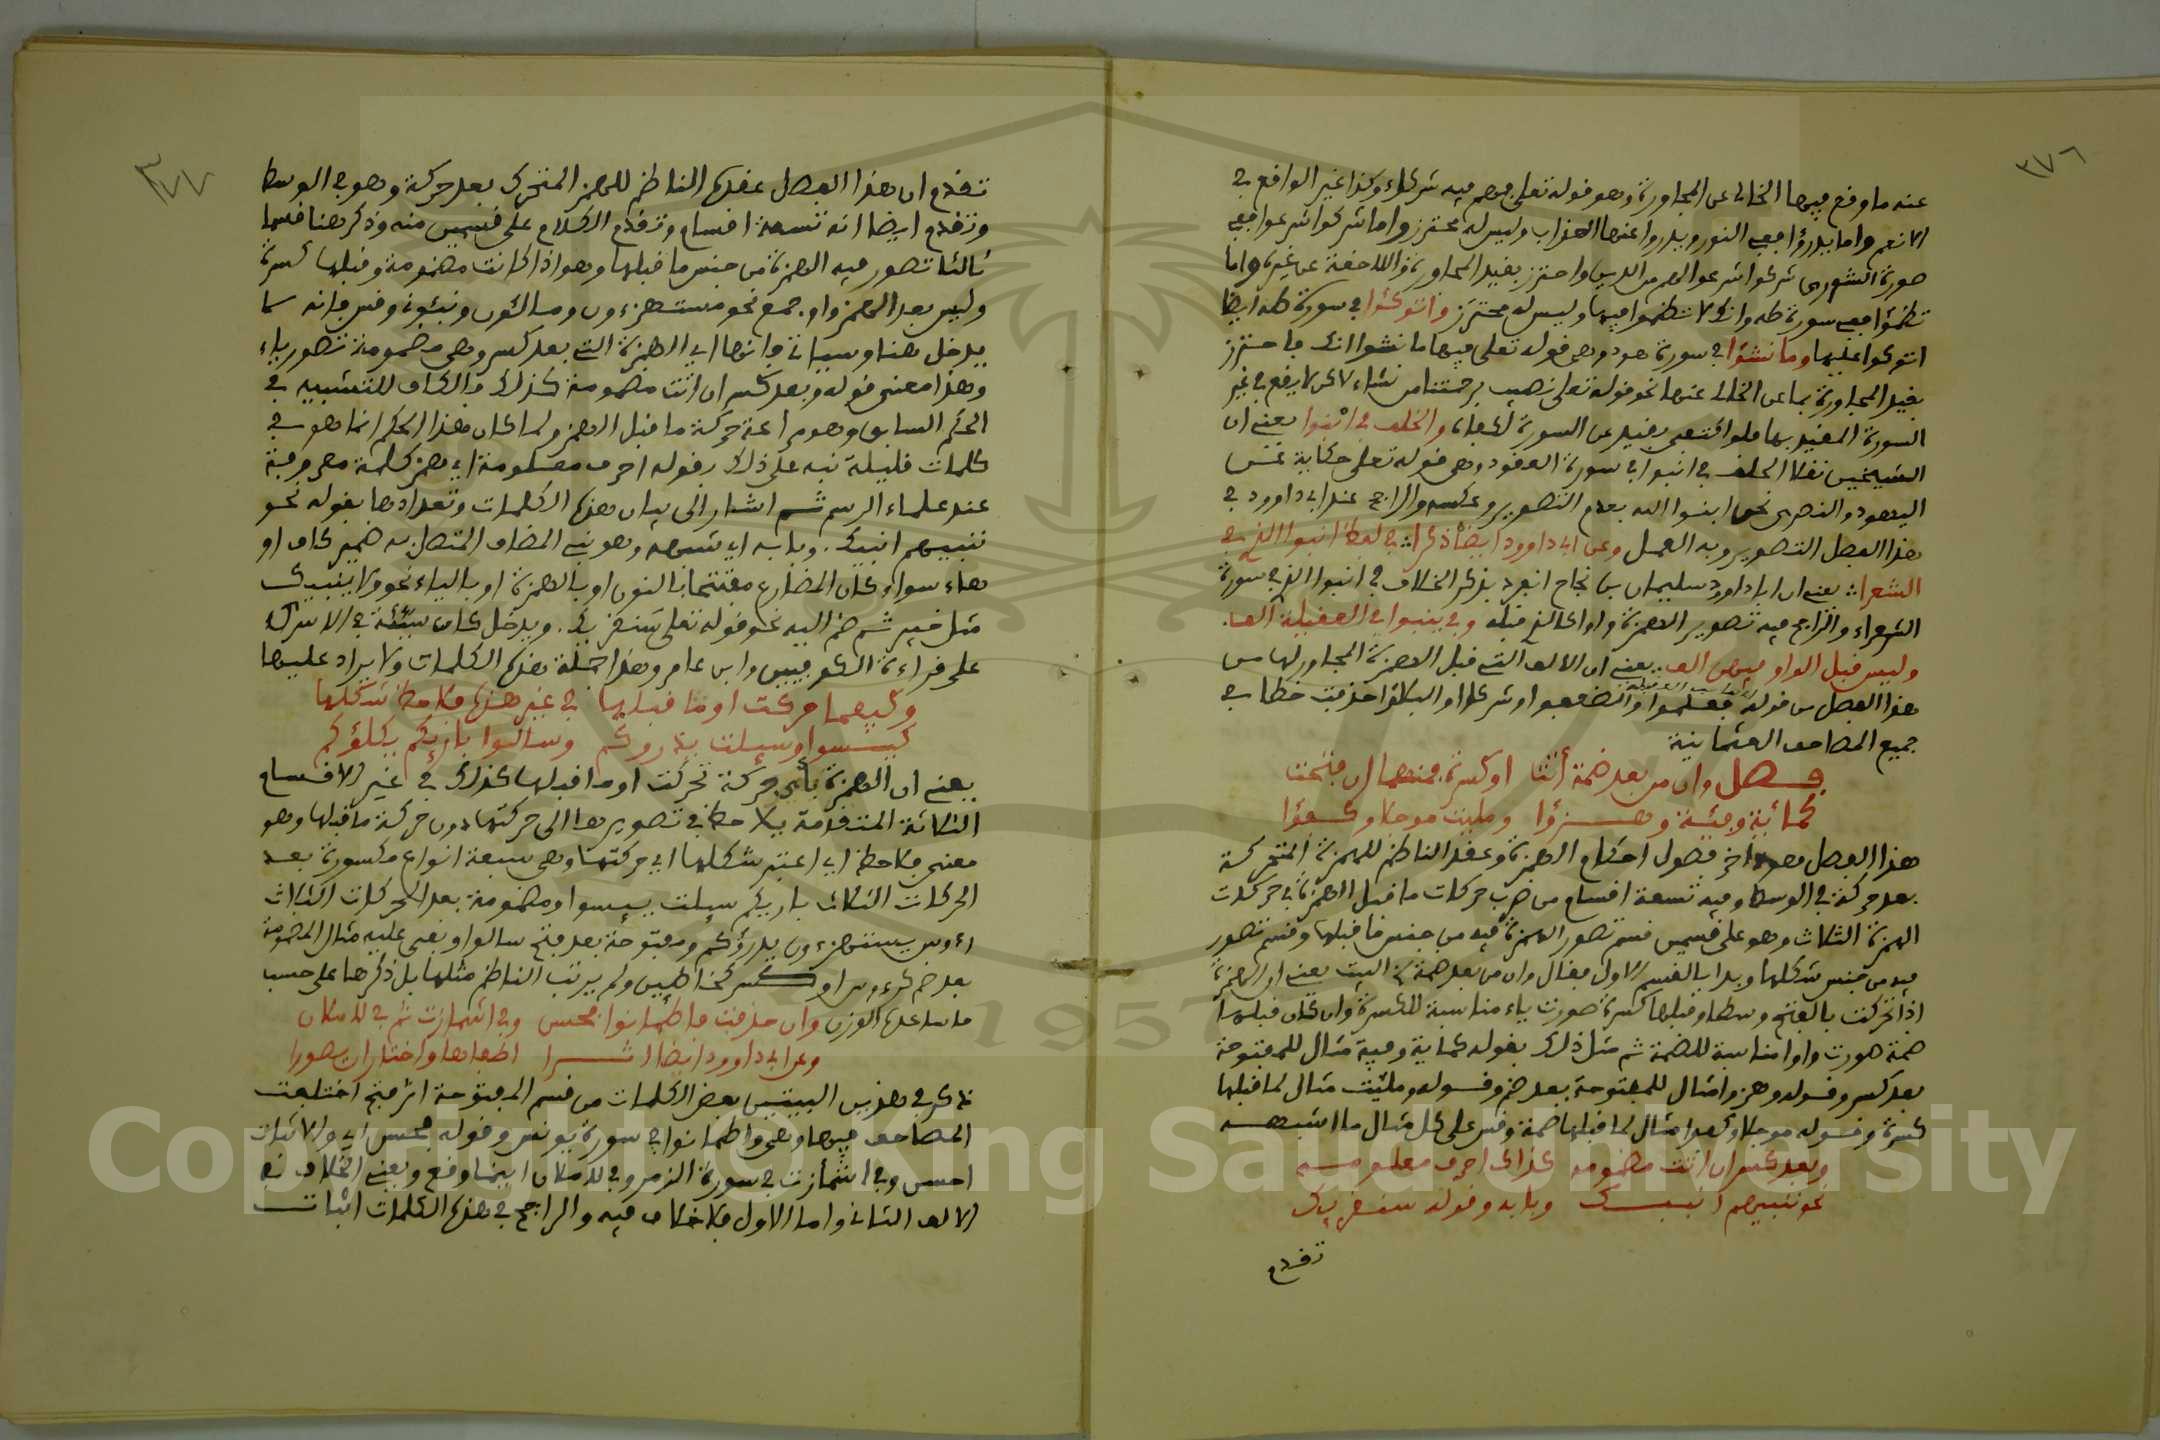 ٣٧٦
عنه ما وقع فيها الخالى عن المجاورة وهو قوله تعلى فهم فيه شركاء وكذا غير الواقع في
الانعم واما يدرؤا ففي النور ويدروا عنها العذاب وليس له محترز واما شركوا شرعوا ففي
سورة الشورى شركوا شرعوا لهم من الدين واحترز بقيد المجاورة واللاحقة عن غيره واما
تظمؤا ففي سورة طه وانك لا تظموا فيها وليس له محترز واتوكئوا في سورة طه ايضا
اتوكوا عليها وما نشؤا في سورة هود وهى قوله تعلى فيها ما نشوا انك فاحترز
بقيد المجاورة بما عن الخالى عنها نحو قوله تعلى نصيب برحمتنا من نشاء لاكن لا يقع في غير
السورة المقيد بها فلو اكتفى بقيد عن السورة لكفاه والخلف في ابنوا يعنى ان
الشيخين نقلا الخلف في ابنوا في سورة العقود وهى قوله تعلى حكاية عن
اليهود والنصرى نحن ابنوا الله بعدم التصوير وعكسه والراجح عند ابى داوود في
هذا الفصل التصوير وبه العمل وعن ابى داوود ايضا ذكرا في لفظ انبوا الذي في
الشعرا يعنى ان ابا داوود سليمان بن نجاح انفرد بذكر الخلاف في انبوا الذي في سورة
الشعراء والراجح فيه تصوير الهمزة واوا كالذي قبله وفي ينبوا في العقيلة الف
وليس قبل الواو فيهن الف يعنى ان الالف التى قبل الهمزة المجاور لها من
هذا الفصل من قوله فعلموا والضعفوا وشركوا والبلؤا حذفت خطا في
جميع المصاحف العثمانية
فصل وان من بعد ضمة أتت او كسرة فمنهما ان فتحت
كمائة وفئة وهزؤا وملئت موجلا وكفؤا
هذا الفصل هو اخر فصول احكام الهمزة وعقد الناظم للهمزة المتحركة
بعد حركة في الوسط وفيه تسعة اقسام من ضرب حركات ما قبل الهمزة في حركات
الهمزة الثلاث وهو على قسمين قسم تصور الهمزة فيه من جنس ما قبلها وقسم تصور
فيه من جنس شكلها وبدا بالقسم الاول فقال وان من بعد ضمة البيت يعنى ان الهمزة
اذا تحركت بالفتح وسطا وقبلها كسرة صورت ياء مناسبة للكسرة وان كان قبلها
ضمة صورت واوا مناسبة للضمة ثم مثل ذلك بقوله كماية وفية مثال للمفتوحة
بعد كسر وقوله وهزوا مثال للمفتوحة بعد ضم وقوله وملئت مثال لما قبلها
كسرة وقوله موجلا وكفوا مثال لما قبلها ضمة وقس على كل مثال ما اشبهه
وبعد كسر ان اتت مضمومه كذاك احرف معلومه
نحو ننبيهم انبيك وبابه وقوله سنقريك
تقدم
٣٧٧
تقدم ان هذا الفصل عقده الناظم للهمز المتحرك بعد حركة وهو في الوسط
وتقدم ايضا انه تسعة اقسام وتقدم الكلام على قسمين منه وذكر هنا قسما
ثالثا تصور فيه الهمزة من جنس ما قبلها وهو اذا كانت مضمومة وقبلها كسرة
وليس بعد الهمز واو جمع نحو مستهزءون ومالئون ونبئونى وقس فانه لا
يدخل هنا وسياتى وانها اي الهمزة التى بعد كسر وهى مضمومة تصور ياء
وهذا معنى قوله وبعد كسر ان اتت مضمومة كذلك فالكاف للتشبيه في
الحكم السابق وهو مراعة حركة ما قبل الهمز ولما كان هذا الحكم انما هو في
كلمات قليلة نبه على ذلك بقوله احرف معلومة اي همز كلمة معروفة
عند علماء الرسم ثم اشار الى بيان هذه الكلمات وتعدادها بقوله نحو
ننبيهم انبيك وبابه اي شبهه وهو نبى المضاف المتصل به ضمير كاف او
هاء سواء كان المضارع مفتتحا بالنون او بالهمزة او بالياء نحو ولا ينبيك
مثل خبير ثم ضم اليه نحو قوله تعلى سنقريك ويدخل كان سيئه في الاسراء
على قراءة الكوفيين وابن عامر وهذا جملة هذه الكلمات ولا يزاد عليها
وكيفما حركت او ما قبلها في غير هذه فلاحظ شكلها
كيئسوا وسئلت يذرؤكم وسالوا بارئكم يكلؤكم
يعنى ان الهمزة باي حركة تحركت او ما قبلها كذلك في غير الاقسام
الثلاثة المتقدمة يلاحظ في تصويرها الى حركتها دون حركة ما قبلها وهو
معنى فلاحظ اي اعتبر شكلها اي حركتها وهى سبعة انواع مكسورة بعد
الحركات الثلاث باريكم سئلت ييسوا ومضمومة بعد الحركات الثلاث
رءوس يستهزءون يدرؤكم ومفتوحة بعد فتح سالوا وبقى عليه مثال المضمومة
بعد ضم كرءوس او كسر كخاطئين ولم يرتب الناظم مثلها بل ذكرها على حسب
ما ساعده الوزن وان حذفت فاطمانوا فحسن وفي اشمازت ثم في لاملان
وعن ابى داوود ايضا اثرا اطفاها واختار ان يصورا
ذكر في هذين البيتين بعض الكلمات من قسم المفتوحة اثر فتح اختلفت
المصاحف فيها وهى واطمانوا في سورة يونس وقوله فحسن اي والاثبات
احسن وفي اشمازت في سورة الزمر وفي لاملان اينما وقع ويعنى الخلاف في
الالف الثانى واما الاول فلا خلاف فيه والراجح في هذه الكلمات اثبات
Copyright © King Saud University
1957